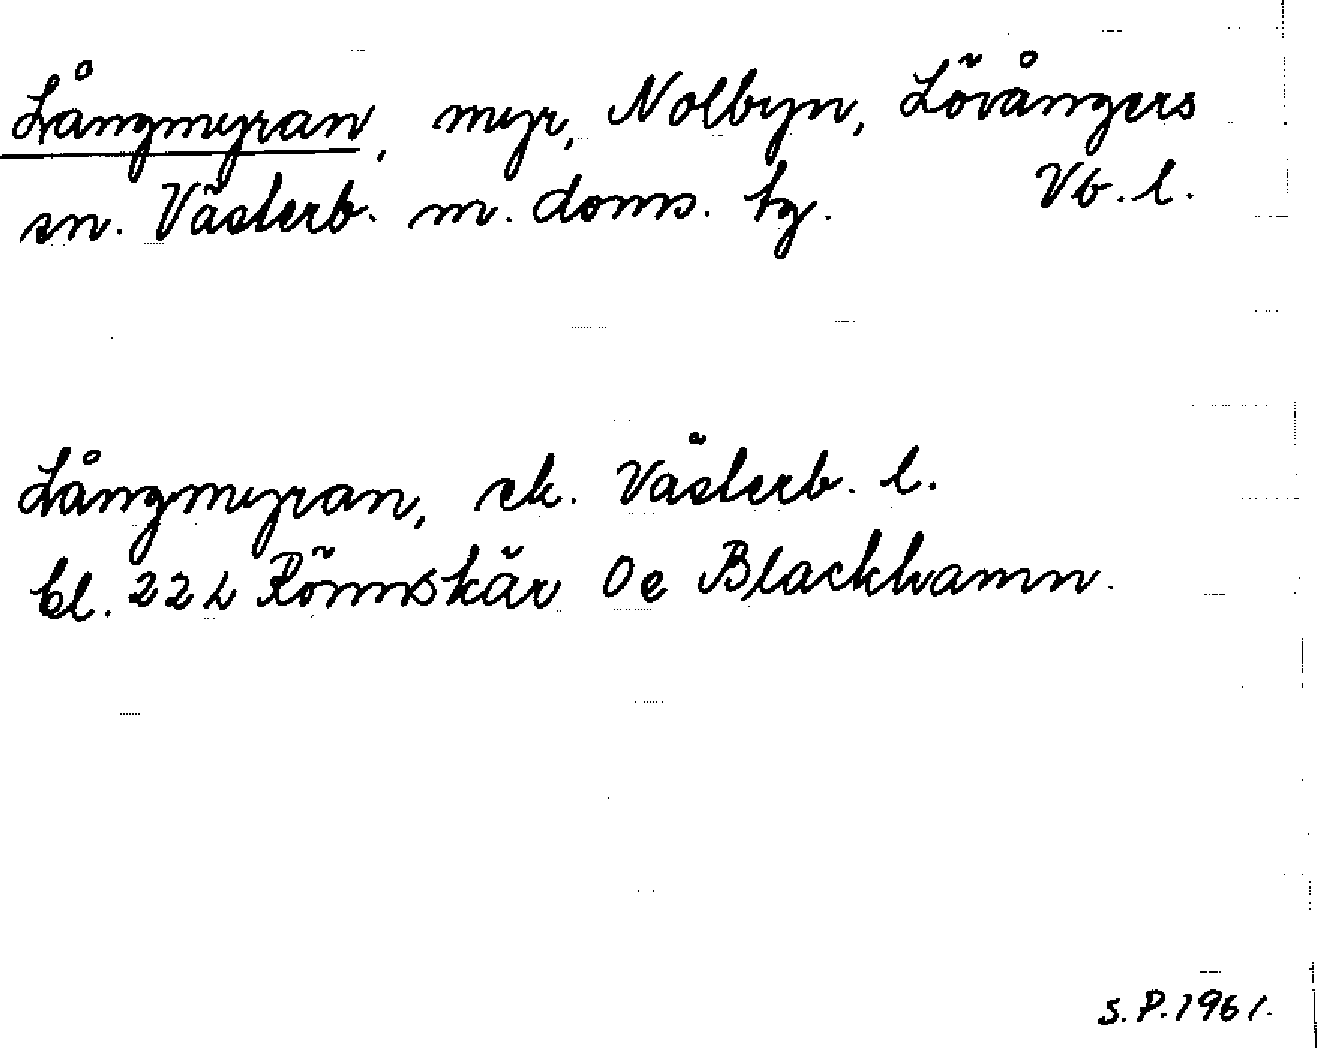 Långmyran, myr, Nolbyn, Lövångers
sn. Västerb. m. doms. tg. Vb. l.
Långmyran, ek. Västerb. l.
bl. 22 L Rönnskär Oe Blackhamn.
S. P. 1961.